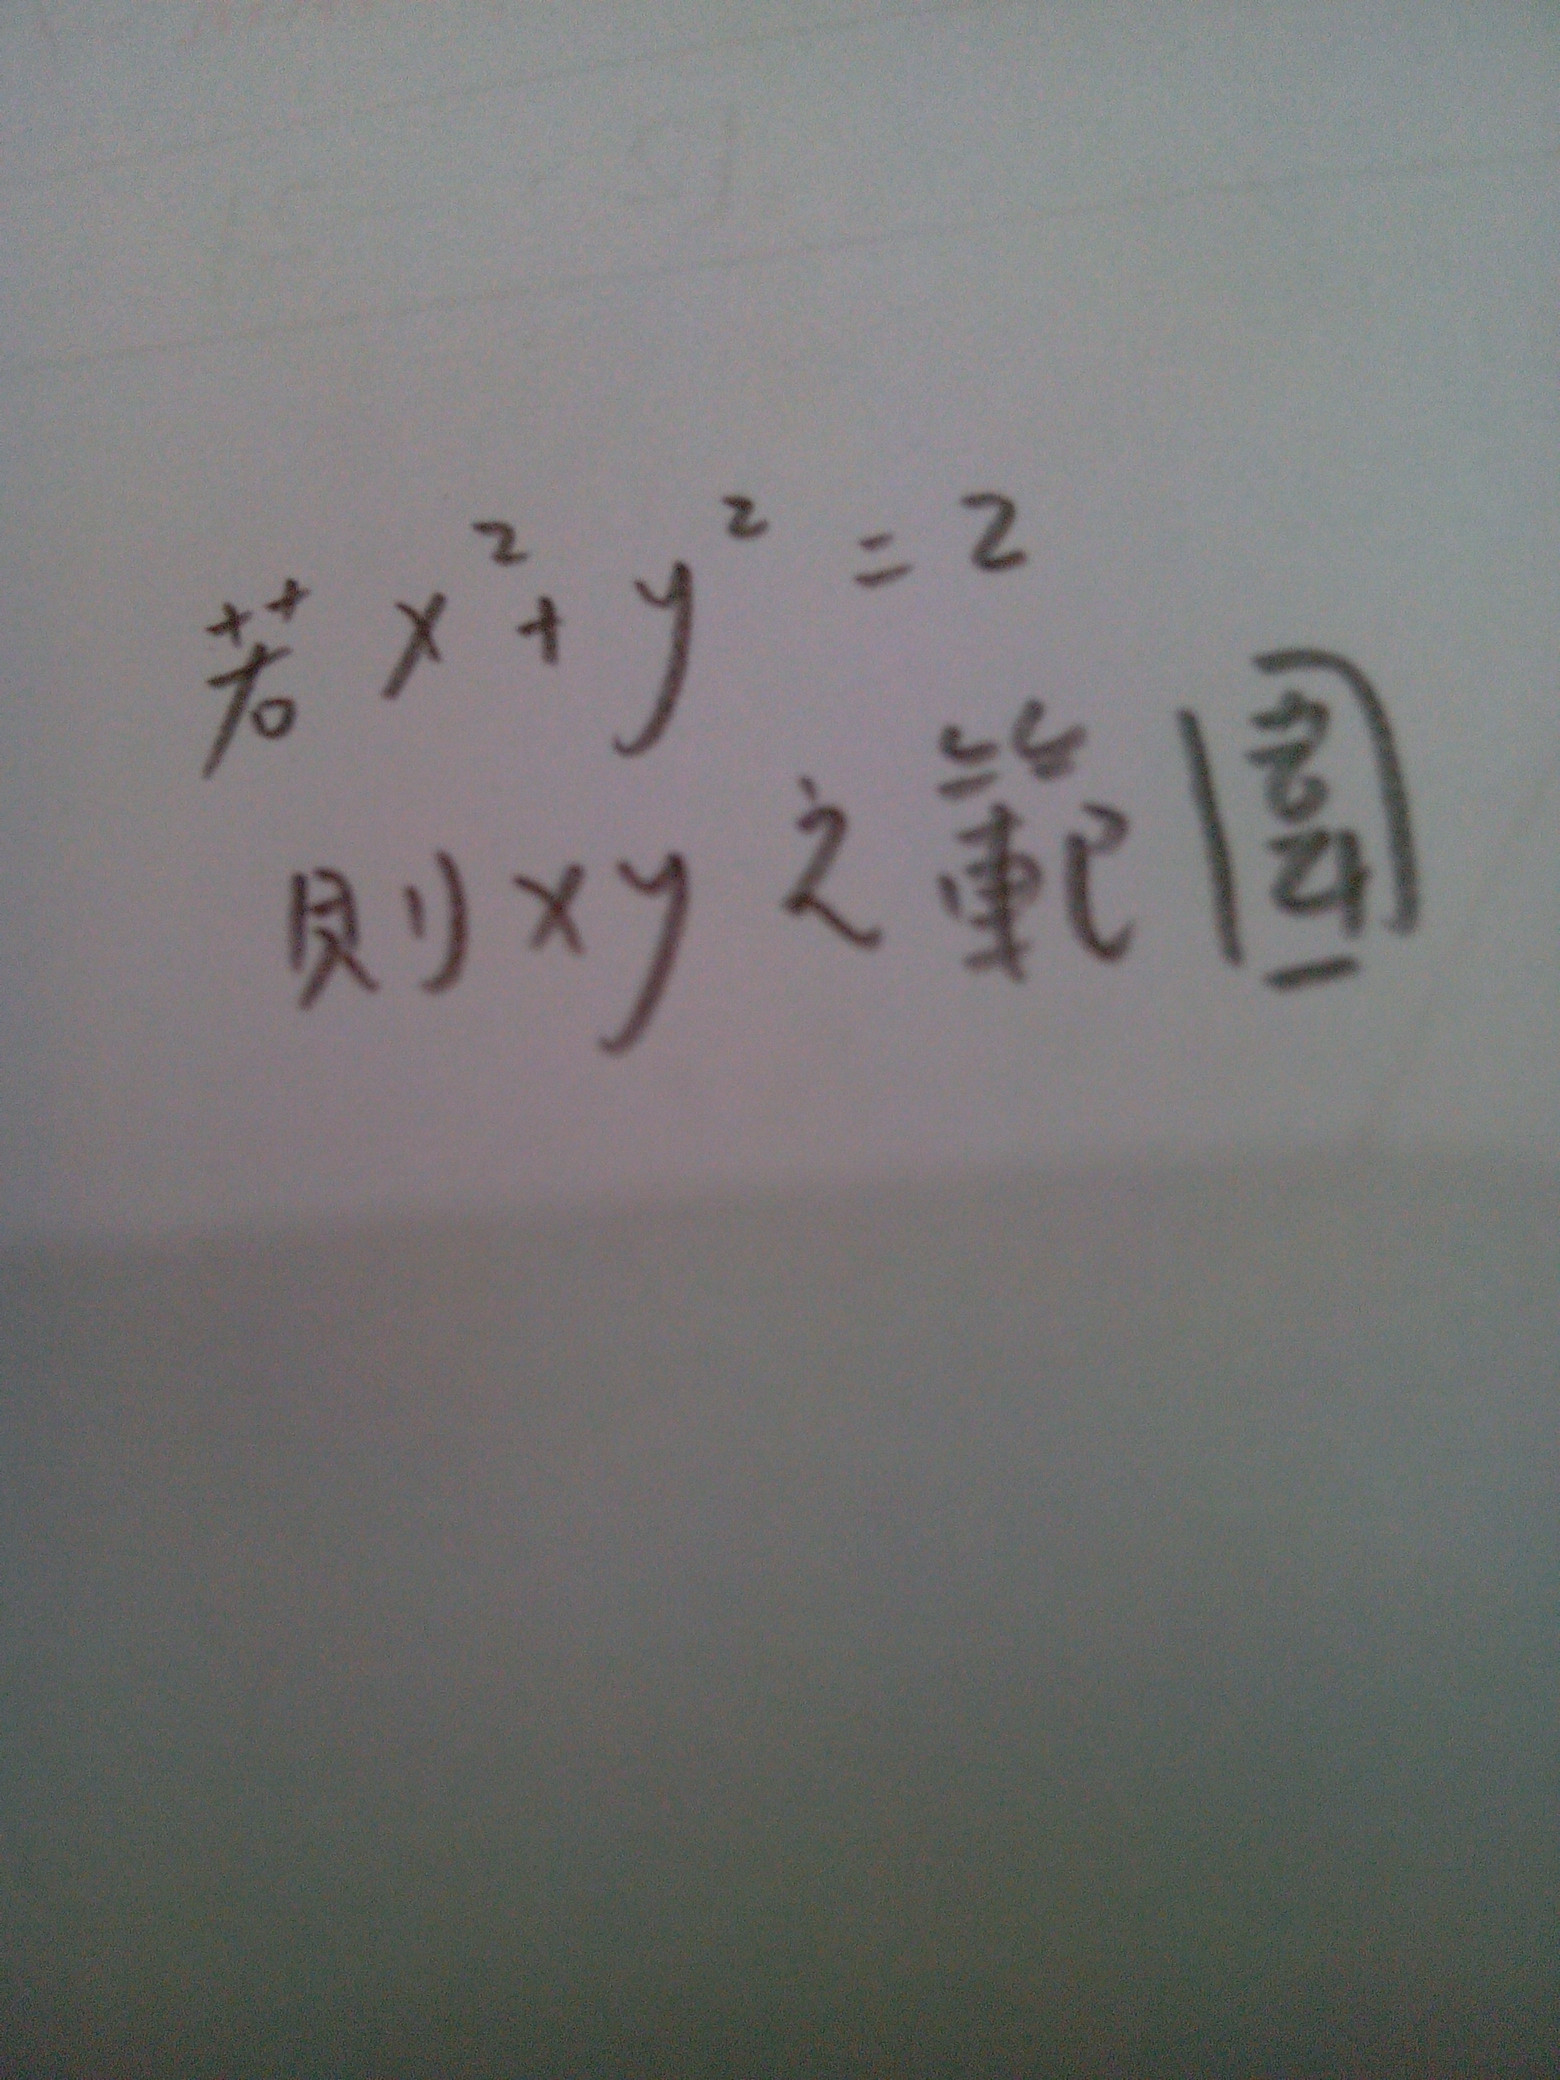 若 x² + y² = 2
則 xy 之範圍